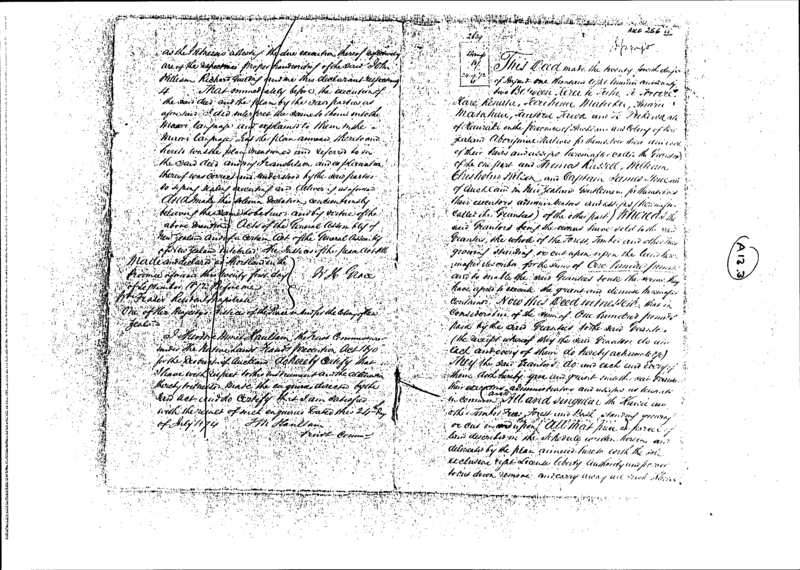 as the Witnesses attesting the due execution thereof respectively
are of the respective proper handwriting of the said John
William Richard Guilding and me this declarant respectively
4 That immediately before the execution of
the said deed and the plan by the said parties as
aforesaid I did interpret the same to them into the
Maori language and explained to them in the
Maori language that the plan annexed thereto and
hereto was the plan mentioned and referred to in
the said deed and my translation and explanation
thereof was correct and understood by the said parties
to signing sealing executing and delivery as aforesaid
And I make this solemn Declaration conscientiously
believing the same to be true and by virtue of the
above Acts of the General Assembly of
New Zealand and of a certain Act of the General Assembly
of New Zealand intituled The Justices of the peace Act 1866
Made and declared at Shortland in the
Province aforesaid this twenty first day
of September 1872 Before me
W H Grace
W Fraser Resident Magistrate
One of Her Majesty's Justices of the Peace in and for the Colony of New
Zealand
I Theodore Minet Haultain the Trust Commissioner
under The Native Lands Frauds Prevention Act 1870
for the District of Auckland do hereby Certify that
I have with respect to this instrument and the alienation
thereby evidenced made the enquiries directed by the
said Act and do certify that I am satisfied
with the result of such enquiries Dated this 24th day
of July 1874
T M Haultain
Trust Commr
AKE 256
This Deed made the twenty fourth day
of August one thousand eight hundred and seventy
two Between
Hare Renata,
of Hauraki in the Province of Auckland and Colony of New
Zealand Aboriginal Natives for themselves their and each
of their heirs and assigns hereinafter called the Grantors
of the one part and Thomas Russell, William
Chisholm Wilson and Captain James
of Auckland in New Zealand Gentlemen for themselves
their executors administrators and assigns (hereinafter
called the Grantees) of the other part) Whereas the
said Grantors being the owners have sold to the said
Grantees, the whole of the Forest, Timber and other trees
growing standing or cut upon the land herein
after described for the sum of One hundred pounds
and to enable the said Grantees to the same they
have agreed to execute the grant and demise hereinafter
contained Now this Deed witnesseth that in
consideration of the sum of One hundred pounds
paid by the said Grantees to the said Grantors
(the receipt whereof they the said Grantors do and
each and every of them do hereby acknowledge)
They the said Grantors do and each and every of
them doth hereby give and grant unto the said Grantees
their executors administrators and assigns as tenants
in common All and singular the Kauri and
other Timber Trees Forest and Bush standing growing
or cut in and upon All that piece or parcel of
land described in the Schedule written hereon and
delineated by the plan annexed hereto with the sole
exclusive right License liberty authority and power
to cut down remove and carry away all such Kauri
A12.3